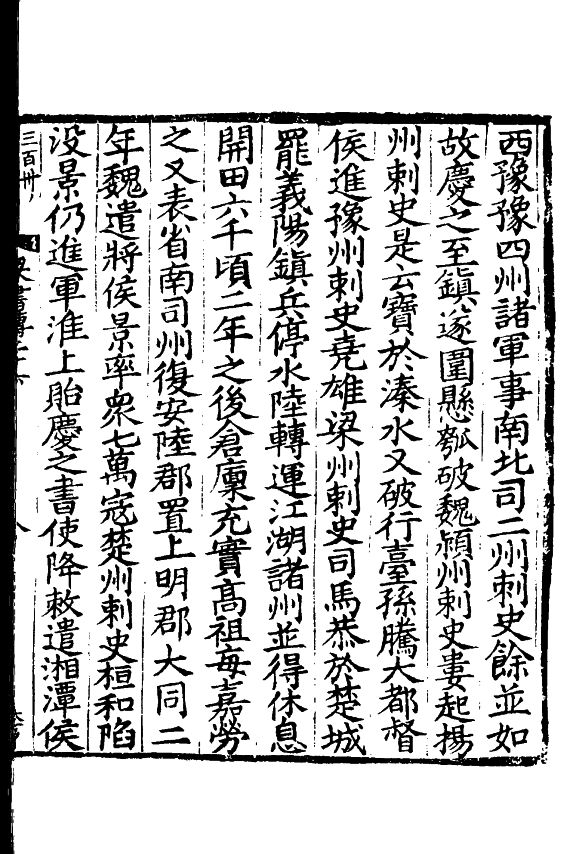 西豫豫四州諸軍事南北司二州刺史餘並如
故慶之至鎮遂圍懸瓠破魏潁州刺史婁起揚
州刺史是云寶於溱水又破行臺孫騰大都督
侯進豫州刺史堯雄梁州刺史司馬恭於楚城
罷義陽鎮兵停水陸轉運江湖諸州並得休息
開田六千頃二年之後倉廩充實高祖每嘉勞
之又表省南司州復安陸郡置上明郡大同二
年魏遣將侯景率眾七萬寇楚州刺史桓和陷
没景仍進軍淮上貽慶之書使降敕遣湘潭侯
三百卅